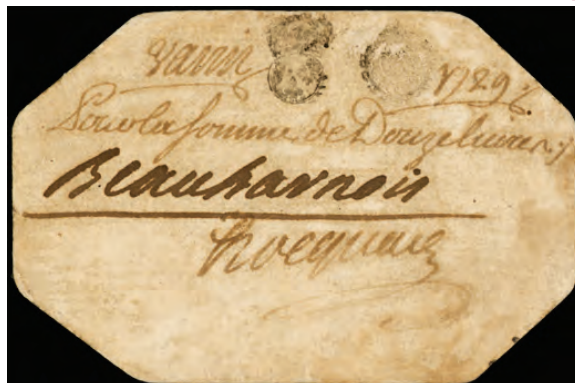 Varin 1729.
Pour la somme de Douze livres
Beauharnois
Hocquart